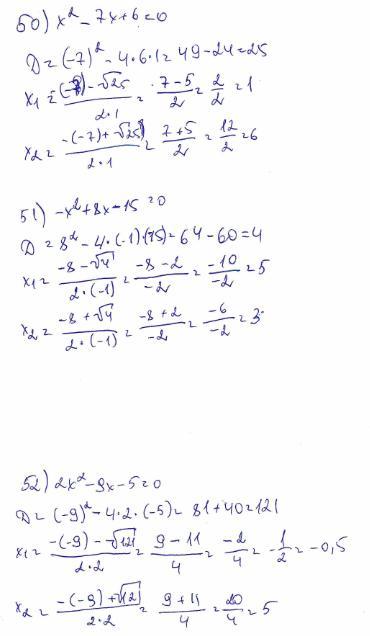 50) x² - 7x + 6 = 0
D = (-7)² - 4·6·1 = 49 - 24 = 25
x₁ = (-(-7) - √25)/(2·1) = (7 - 5)/2 = 2/2 = 1
x₂ = (-(-7) + √25)/(2·1) = (7 + 5)/2 = 12/2 = 6
51) -x² + 8x - 15 = 0
D = 8² - 4·(-1)·(-15) = 64 - 60 = 4
x₁ = (-8 - √4)/(2·(-1)) = (-8 - 2)/(-2) = (-10)/(-2) = 5
x₂ = (-8 + √4)/(2·(-1)) = (-8 + 2)/(-2) = (-6)/(-2) = 3
52) 2x² - 9x - 5 = 0
D = (-9)² - 4·2·(-5) = 81 + 40 = 121
x₁ = (-(-9) - √121)/(2·2) = (9 - 11)/4 = (-2)/4 = -1/2 = -0,5
x₂ = (-(-9) + √121)/(2·2) = (9 + 11)/4 = 20/4 = 5